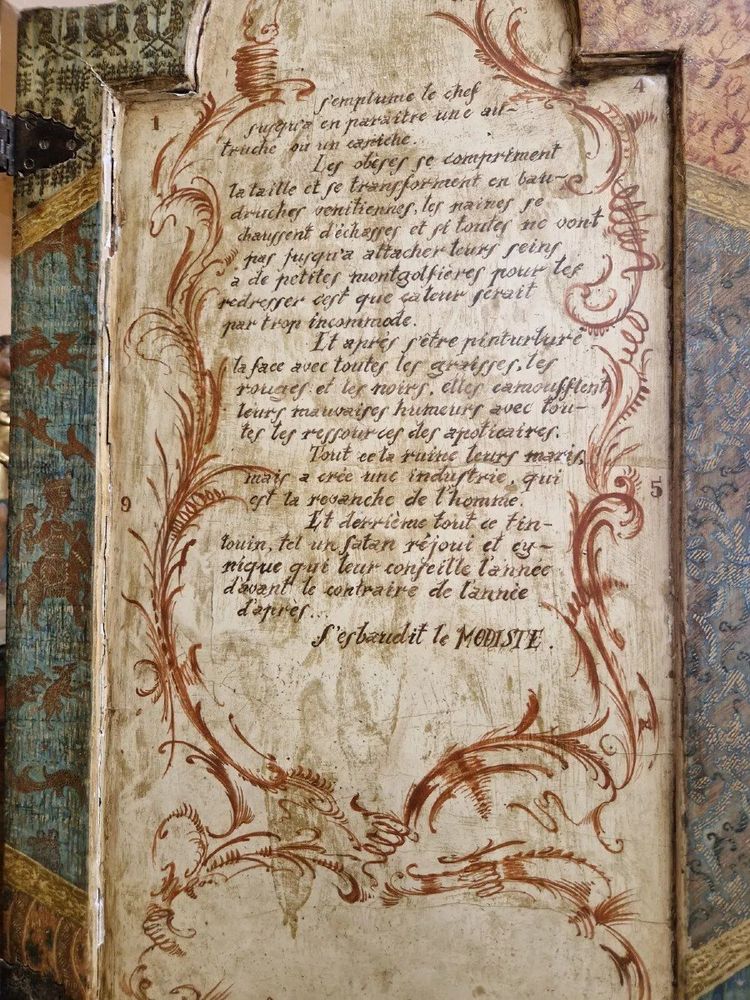 s'emplume le chef
jusqu'a en paraitre une au-
truche ou un caniche.
Les obèses se compriment
la taille et se transforment en bau-
druches venitiennes, les naines se
chaussent d'échasses et si toutes ne vont
pas jusqu'a attacher leurs seins
a de petites montgolfières pour les
redresser c'est que ça leur serait
par trop incommode.
Et après s'être peinturluré
la face avec toutes les graisses, les
rouges et les noirs, elles camoufflent
leurs mauvaises humeurs avec tou-
tes les ressources des apoticaires.
Tout cela ruine leurs maris,
mais a crée une industrie, qui
est la revanche de l'homme.
Et derrième tout ce tin-
touin, tel un Satan réjoui et cy-
nique qui leur conseille l'année
d'avant le contraire de l'année
d'après...
S'esbaudit le MODISTE.
1
4
9
5